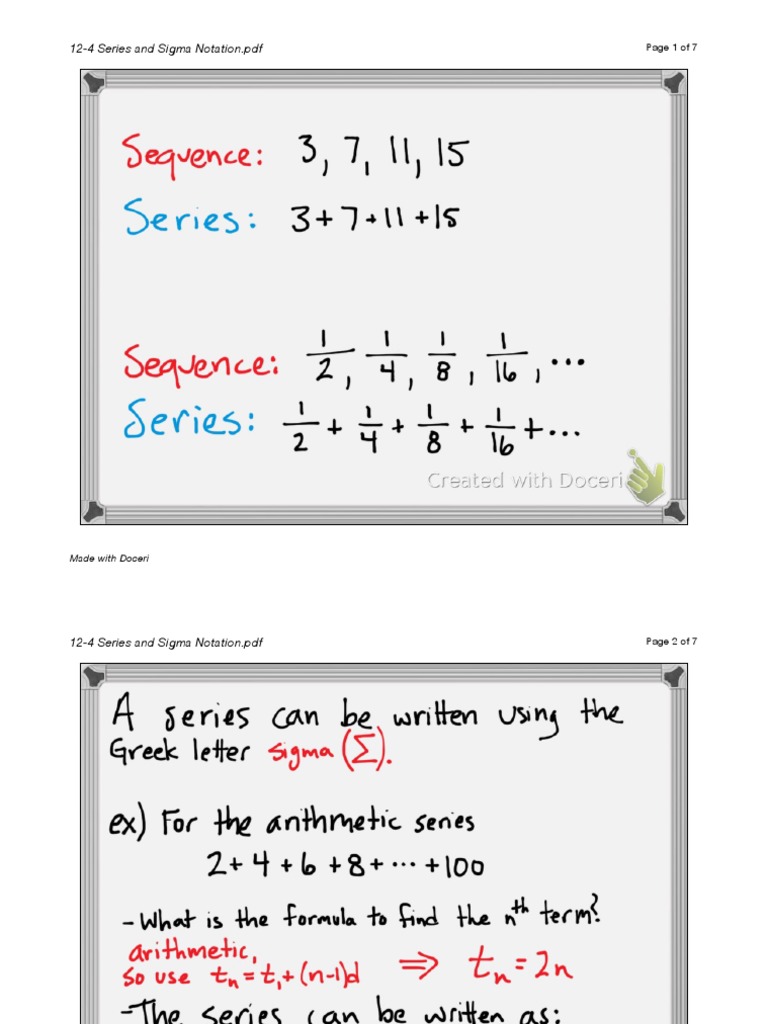 12-4 Series and Sigma Notation.pdf Page 1 of 7
Sequence: 3, 7, 11, 15
Series: 3+7+11+15
Sequence: 1/2, 1/4, 1/8, 1/16, ...
Series: 1/2 + 1/4 + 1/8 + 1/16 + ...
Created with Doceri
Made with Doceri
12-4 Series and Sigma Notation.pdf Page 2 of 7
A series can be written using the
Greek letter sigma (Σ).
ex) For the arithmetic series
2+4+6+8+...+100
- What is the formula to find the nth term?
arithmetic,
so use tn = t1 + (n-1)d ⇒ tn = 2n
- The series can be written as: